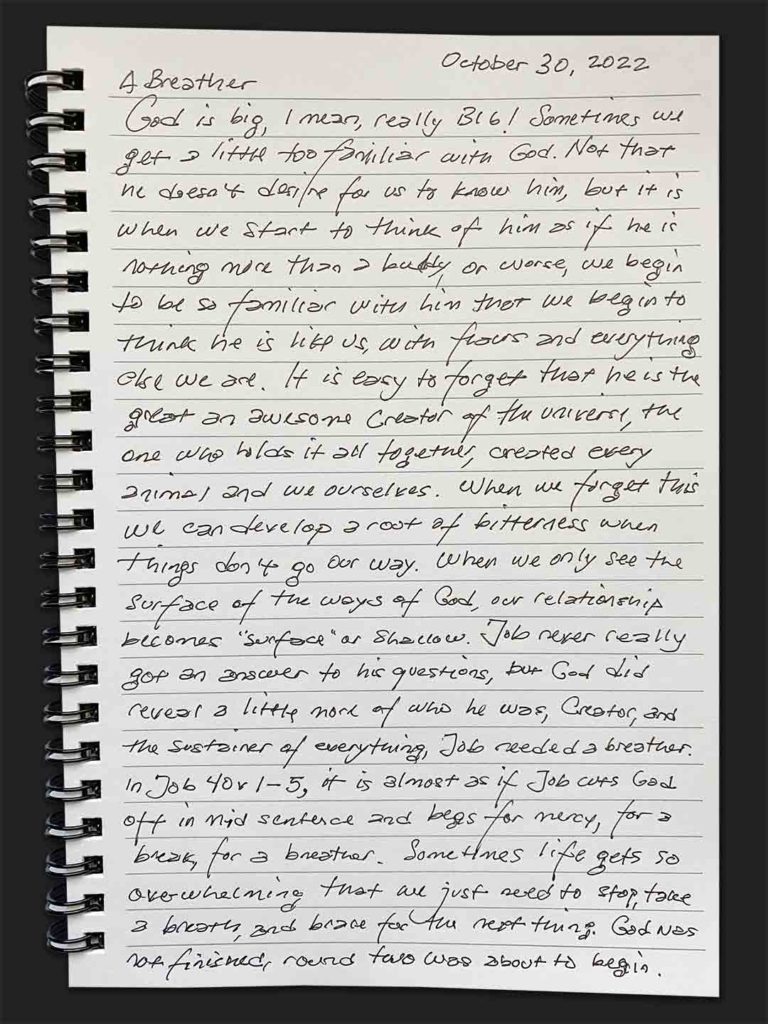 October 30, 2022
A Breather
God is big, I mean, really BIG! Sometimes we
get a little too familiar with God. Not that
he doesn't desire for us to know him, but it is
when we start to think of him as if he is
nothing more than a buddy, or worse, we begin
to be so familiar with him that we begin to
think he is like us, with flaws and everything
else we are. It is easy to forget that he is the
great an awesome Creator of the universe, the
one who holds it all together, created every
animal and we ourselves. When we forget this
we can develop a root of bitterness when
things don't go our way. When we only see the
surface of the ways of God, our relationship
becomes "surface" or shallow. Job never really
got an answer to his questions, but God did
reveal a little more of who he was, Creator, and
the sustainer of everything, Job needed a breather.
In Job 40 v 1-5, it is almost as if Job cuts God
off in mid sentence and begs for mercy, for a
break, for a breather. Sometimes life gets so
overwhelming that we just need to stop, take
a breath, and brace for the next thing. God was
not finished, round two was about to begin.